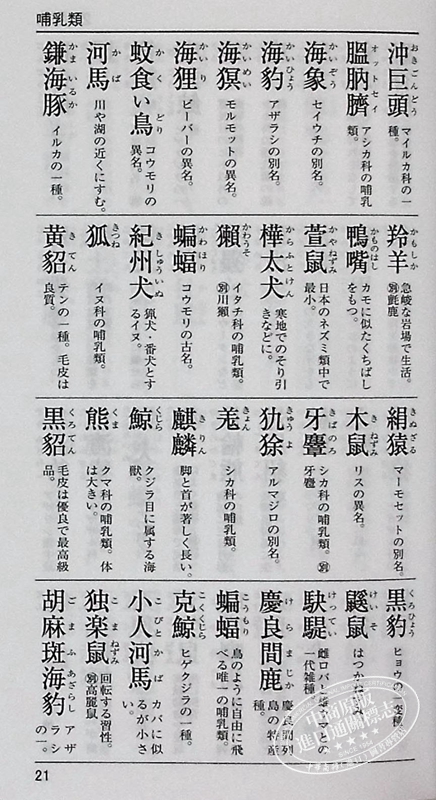 哺乳類
沖巨頭 おきごんどう マイルカ科の一種。
膃肭臍 オットセイ アシカ科の哺乳類。
海象 かいぞう セイウチの別名。
海豹 かいひょう アザラシの別名。
海猽 かいめい モルモットの異名。
海狸 かいり ビーバーの異名。
蚊食い鳥 かくいどり コウモリの異名。
河馬 かば 川や湖の近くにすむ。
鎌海豚 かまいるか イルカの一種。
羚羊 かもしか 急峻な岩場で生活。別氈鹿
鴨嘴 かものはし カモに似たくちばしをもつ。
萱鼠 かやねずみ 日本のネズミ類中で最小。
樺太犬 からふとけん 寒地でのそり引きなどに。
獺 かわうそ イタチ科の哺乳類。別川獺
蝙蝠 かわほり コウモリの古名。
紀州犬 きしゅういぬ 猟犬・番犬とするイヌ。
狐 きつね イヌ科の哺乳類。
黄貂 きてん テンの一種。毛皮は良質。
絹猿 きぬざる マーモセットの別名。
木鼠 きねずみ リスの異名。
牙麞 きばのろ シカ科の哺乳類。別牙麞
犰狳 きゅうよ アルマジロの別名。
羗 きょん シカ科の哺乳類。
麒麟 きりん 脚と首が著しく長い。
鯨 くじら クジラ目に属する海獣。
熊 くま クマ科の哺乳類。体は大きい。
黒貂 くろてん 毛皮は優良で最高級品。
黒豹 くろひょう ヒョウの一変種。
鼷鼠 けいそ はつかね
駃騠 けってい 雌ロバと 一代雑種。
慶良間鹿 けらまじか 慶良間列島の特産種。
蝙蝠 こうもり 鳥のように自由に飛べる唯一の哺乳類。
克鯨 こくくじら ヒゲクジラの一種。
小人河馬 こびとかば カバに似るが小さい。
独楽鼠 こまねずみ 回転する習性。別高麗鼠
胡麻斑海豹 ごまふあざらし アザラシの一。
21
中商原版